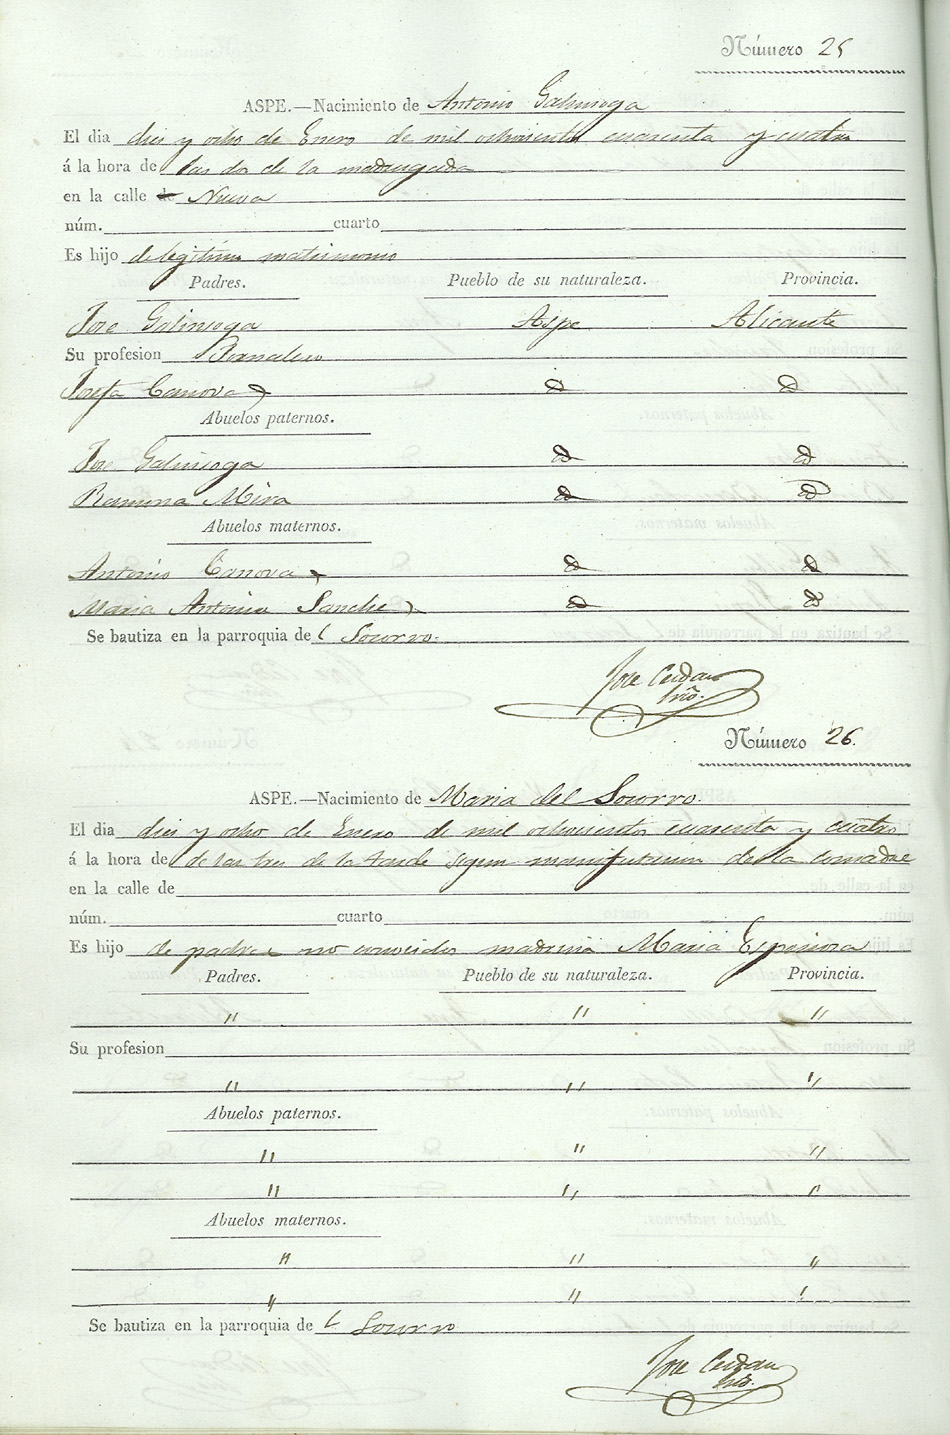 Número 25
ASPE.—Nacimiento de Antonio Galinsoga
El dia diez y ocho de Enero de mil ochocientos cuarenta y cuatro
á la hora de las dos de la madrugada
en la calle de Nueva
núm. cuarto
Es hijo de legitimo matrimonio
Padres. Pueblo de su naturaleza. Provincia.
Jose Galinsoga Aspe Alicante
Su profesion Jornalero
Josefa Canovas d d
Abuelos paternos.
Jose Galinsoga d d
Ramona Mira d d
Abuelos maternos.
Antonio Canovas d d
Maria Antonia Sanchez d d
Se bautiza en la parroquia del Socorro.
Jose Cerdan
Número 26.
ASPE.—Nacimiento de Maria del Socorro.
El dia diez y ocho de Enero de mil ochocientos cuarenta y cuatro
á la hora de de las tres de la tarde segun manifestacion de la comadre
en la calle de
núm. cuarto
Es hijo de padres no conocidos madrina Maria Espinosa
Padres. Pueblo de su naturaleza. Provincia.
" " "
Su profesion
" " "
Abuelos paternos.
" " "
" " "
Abuelos maternos.
" " "
" " "
Se bautiza en la parroquia del Socorro
Jose Cerdan